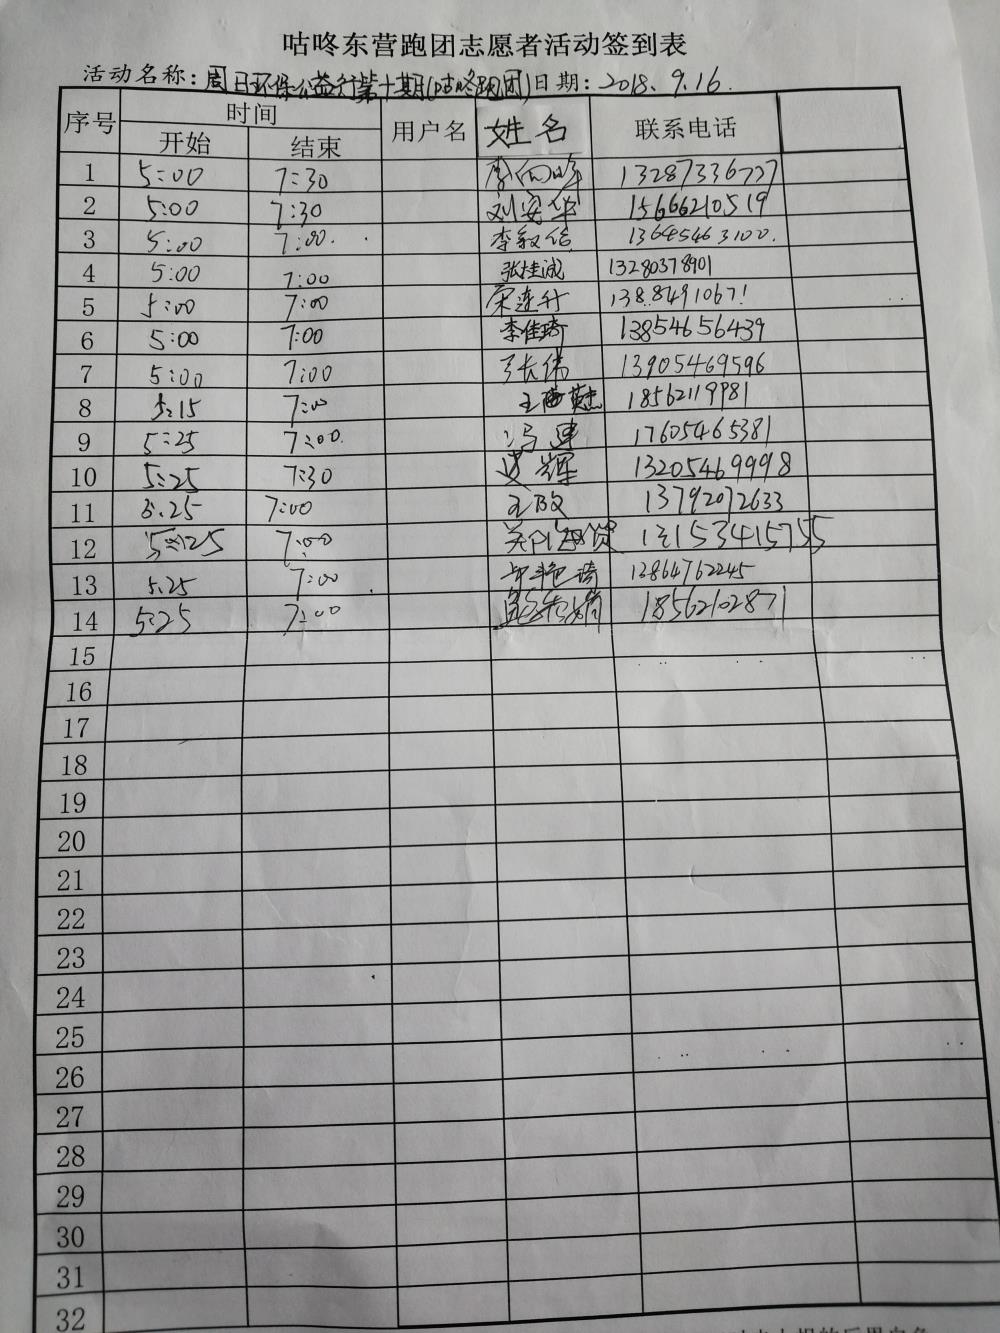 咕咚东营跑团志愿者活动签到表
活动名称：周日环保公益行第十期(咕咚跑团) 日期：2018.9.16.
序号 时间 用户名 姓名 联系电话
开始 结束
1 5:00 7:30 13287336777
2 5:00 7:30 刘安华 15666210519
3 5:00 7:00. 李毅信 13645463100.
4 5:00 7:00 张桂诚 13280378901
5 5:00 7:00 宋连升 13884910671
6 5:00 7:00 李佳琦 13854656439
7 5:00 7:00 张伟 13905469596
8 5:15 7:00 王海燕 18562119981
9 5:25 7:00. 冯建 17605465381
10 5:25 7:30 辉 13205469998
11 5.25 7:00 王政 13792072633
12 5:25 7:00 15153415755
13 5.25 7:00 13864762245
14 5:25 7:00 18562102871
15
16
17
18
19
20
21
22
23
24
25
26
27
28
29
30
31
32